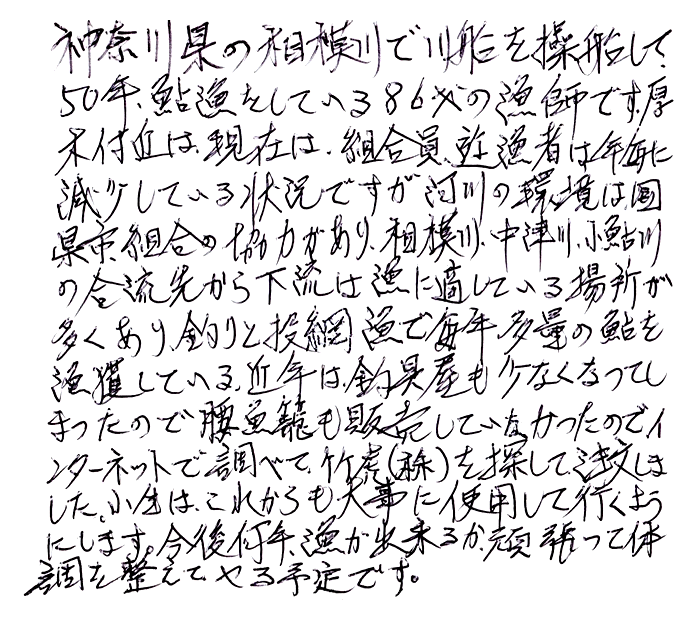 神奈川県の相模川で川船を操船して、
50年、鮎漁をしている86才の漁師です。厚
木付近は、現在は、組合員、遊漁者は年毎に
減少している状況ですが河川の環境は国
県市組合の協力があり、相模川、中津川、小鮎川
の合流先から下流は漁に適している場所が
多くあり、釣りと投網漁で毎年多量の鮎を
漁獲している。近年は、釣具屋も少なくなってし
まったので腰魚籠も販売していなかったのでイ
ンターネットで調べて、竹虎(株)を探して、注文しま
した。小生は、これからも大事に使用して行くよう
にします。今後何年、漁が出来るか、頑張って体
調を整えてやる予定です。